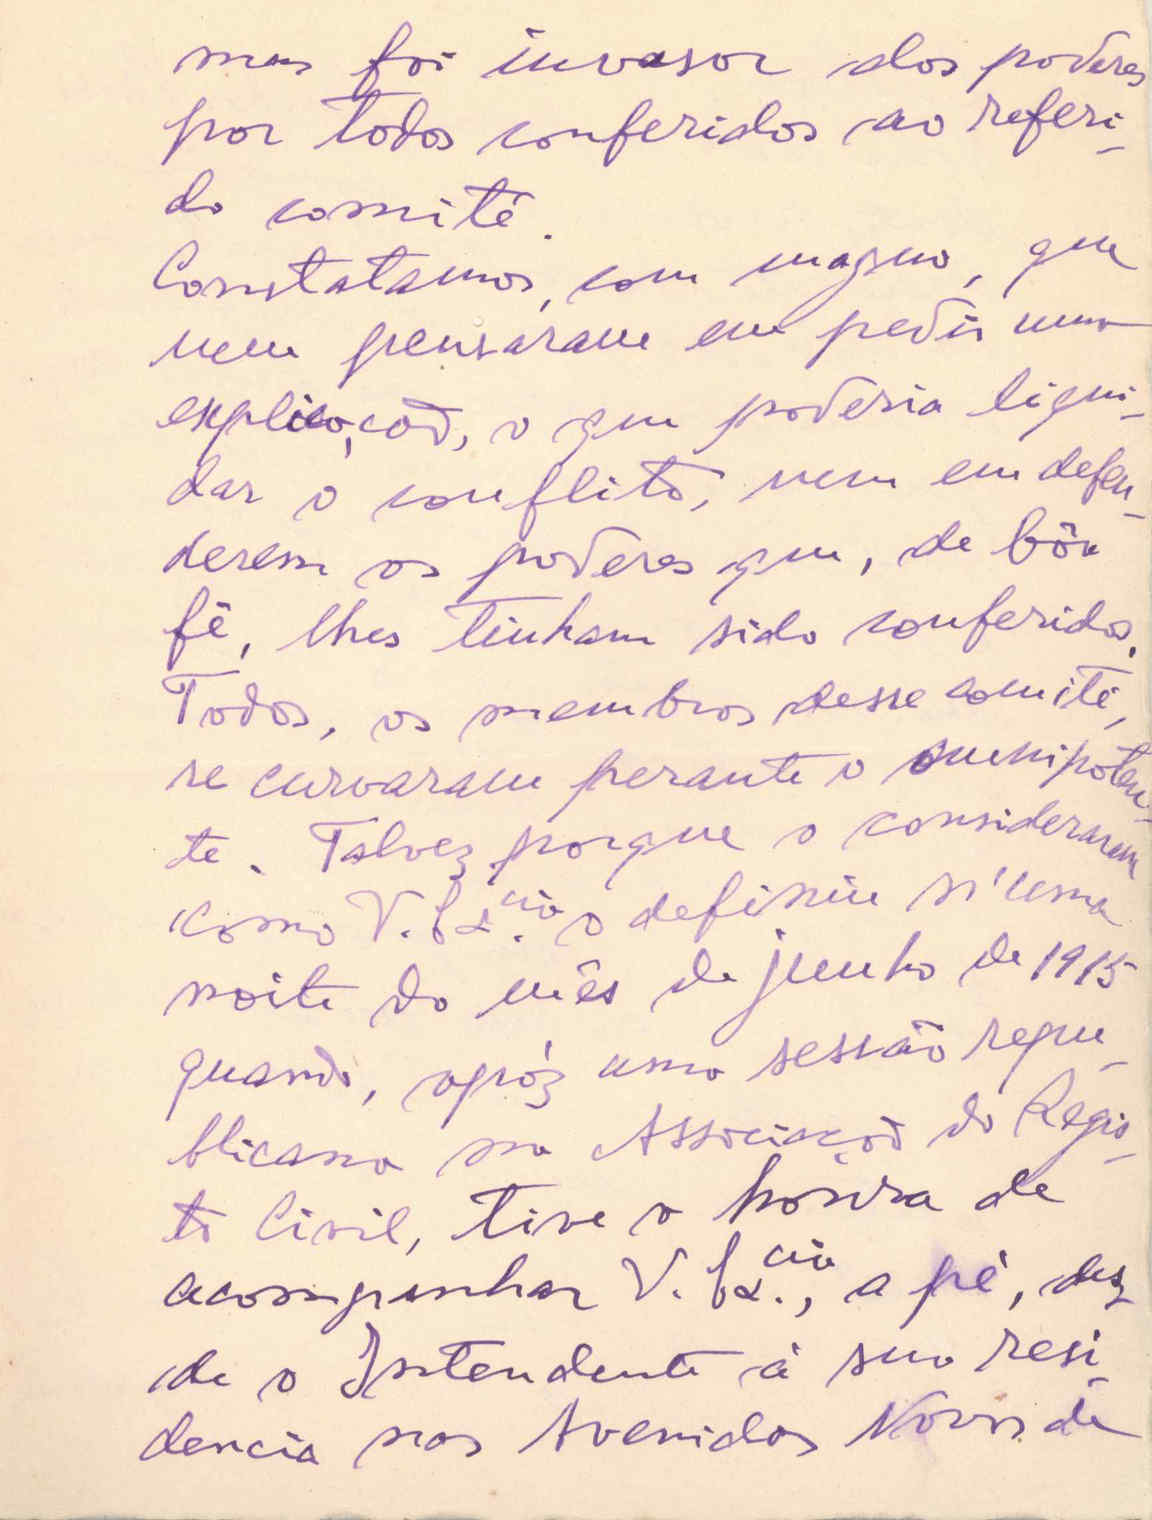 mas foi invasor dos poderes
por todos conferidos ao referi-
do comitê.
Constatamos, com magua, que
nem pensaram em pedir uma
explicação, o que poderia liqui-
dar o conflito, nem em defen-
derem os poderes que, de bôa
fé, lhes tinham sido conferidos.
Todos, os membros desse comitê,
se curvaram perante o omnipoten-
te. Talvez porque o considerarem
como V. Ex.cia o definiu n'uma
noite do mês de junho de 1915
quando, após uma sessão repu-
blicana na Associação do Regis-
to Civil, tive a honra de
acompanhar V. Ex.cia, a pé, dez
de o Intendente á sua resi-
dencia nas Avenidas Novas de